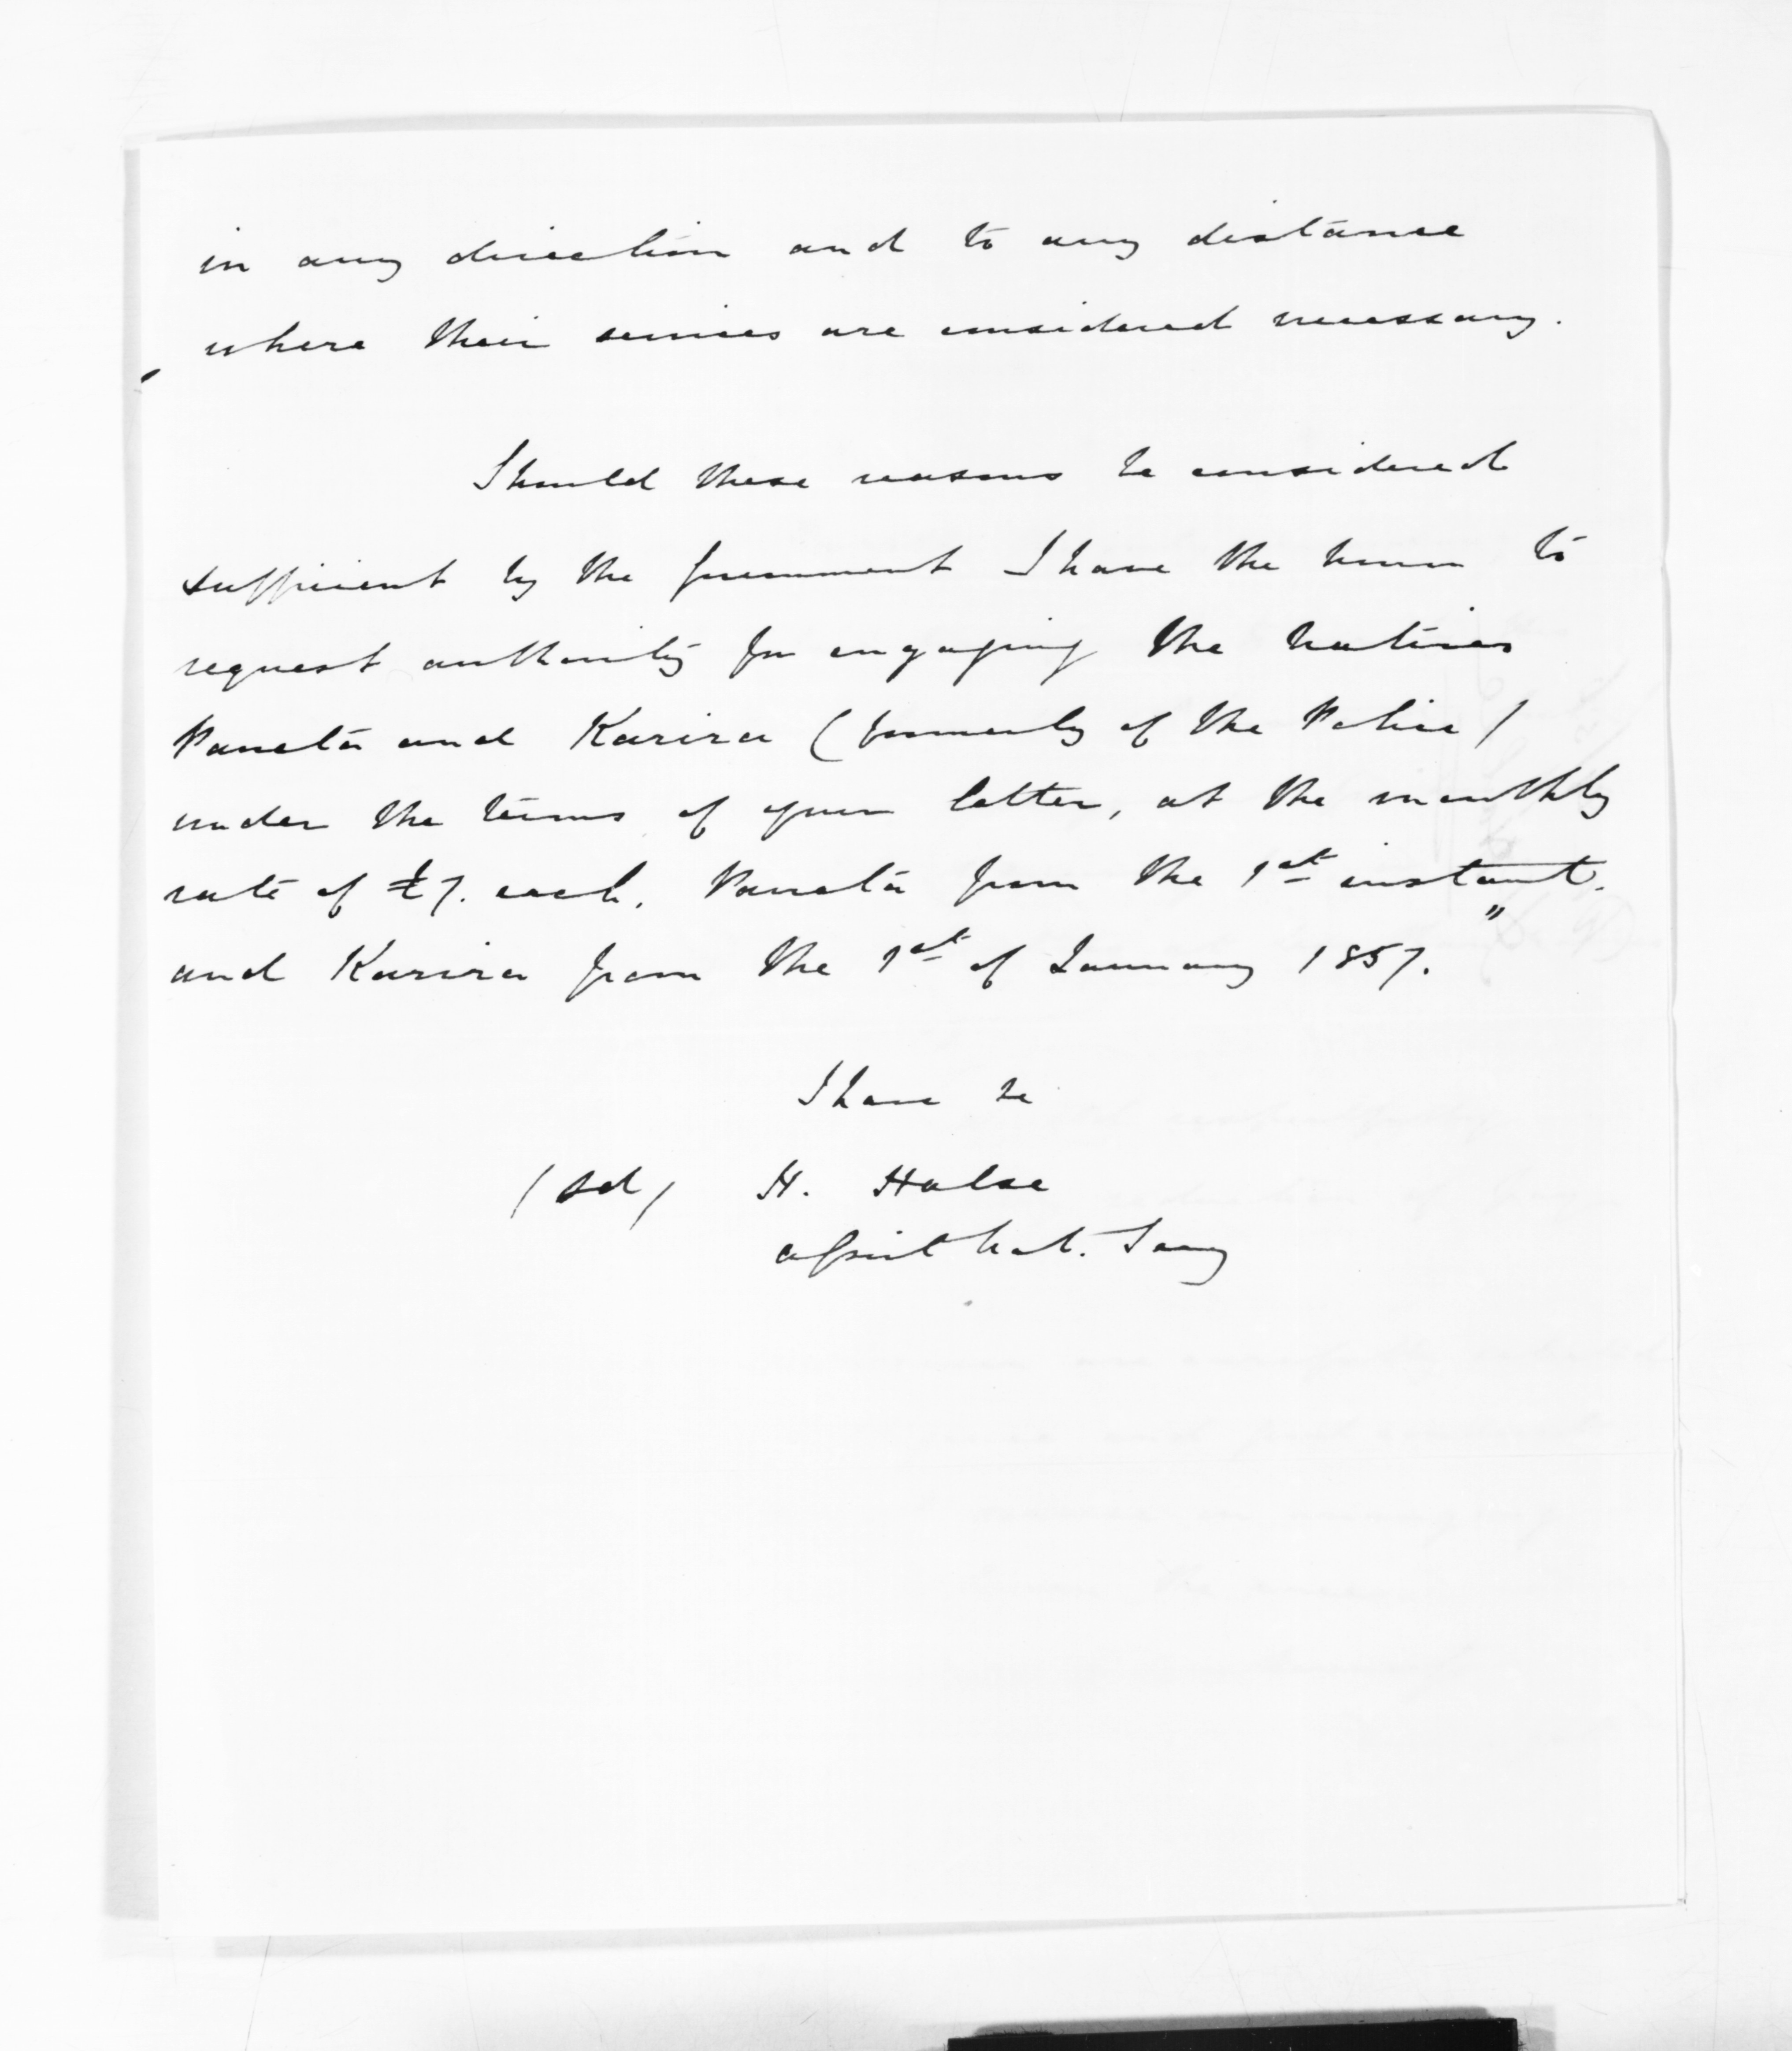 in any direction and to any distance
where their services are considered necessary.
Should these reasons be considered
sufficient by the Government I have the honor to
request authority for engaging the Natives
and Karira (formerly of the Police)
under the terms of your letter, at the monthly
rate of £7. each, from the 1st instant.
"
and Karira from the 1st of January 1857.
I have &c
(sd) H. Halse
Assist Nat. Secy